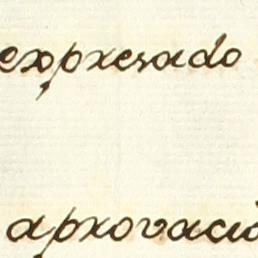 expresado
aprovació